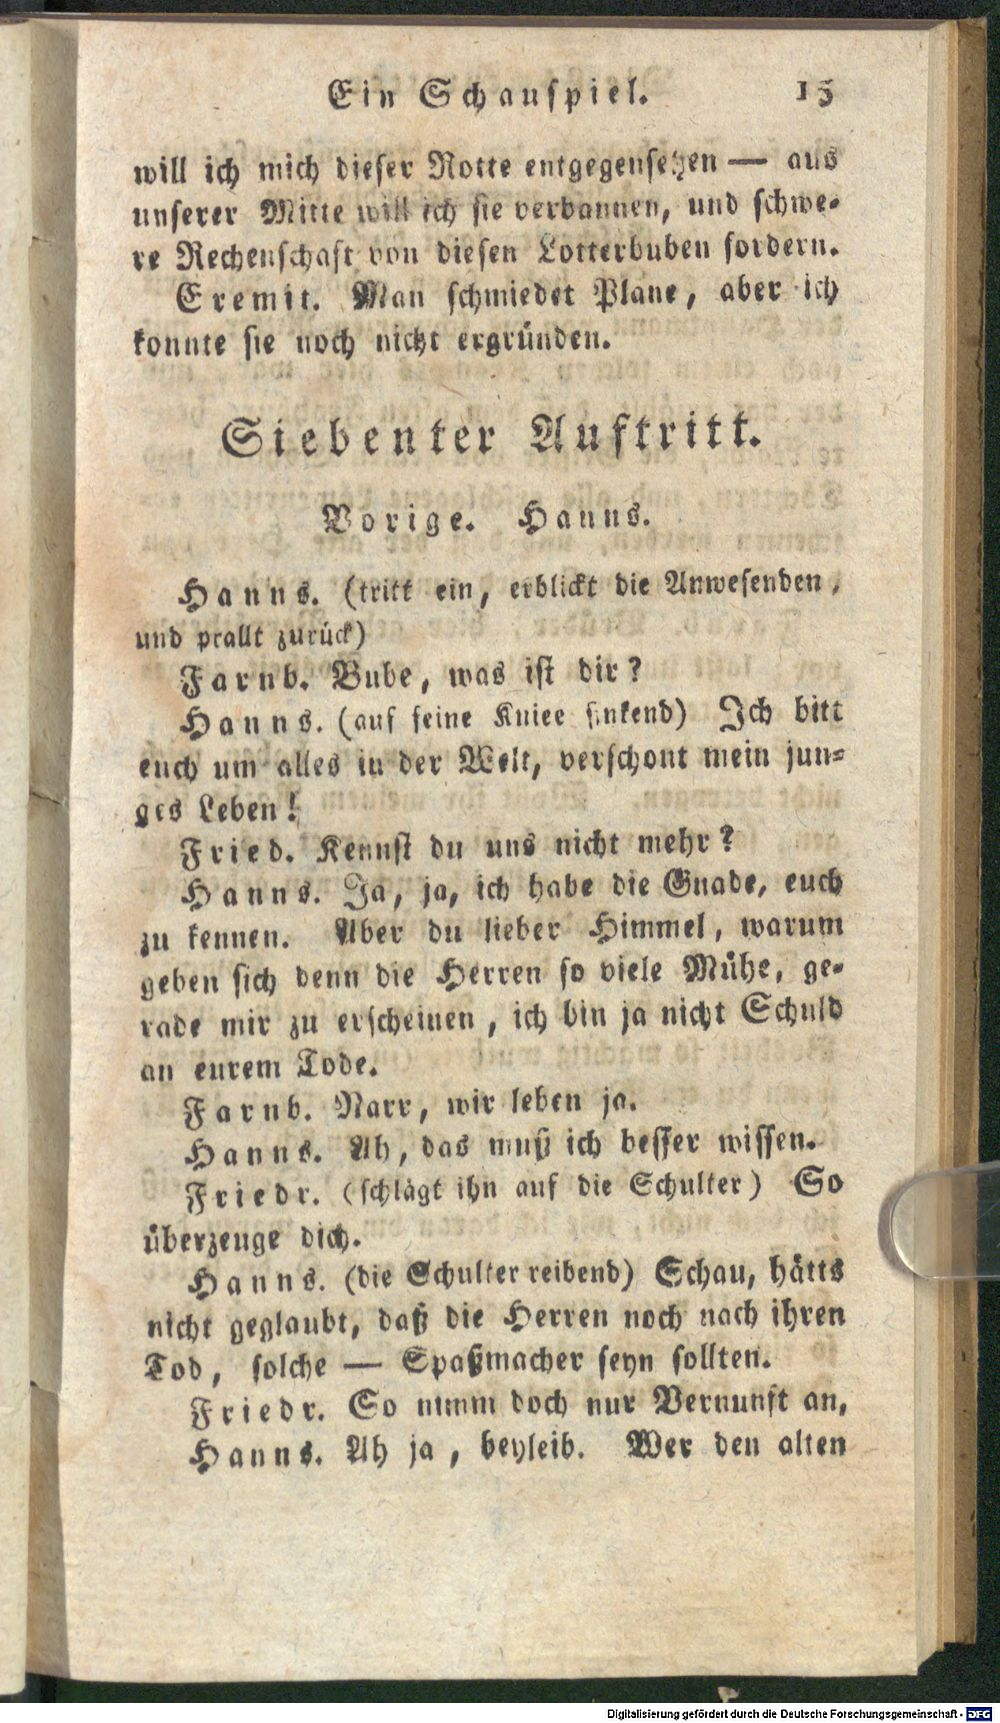 Ein Schauspiel. 15
will ich mich dieser Rotte entgegensetzen — aus
unserer Mitte will ich sie verbannen, und schwe-
re Rechenschaft von diesen Lotterbuben fordern.
Eremit. Man schmiedet Plane, aber ich
konnte sie noch nicht ergründen.
Siebenter Auftritt.
Vorige. Hanns.
Hanns. (tritt ein, erblickt die Anwesenden,
und prallt zurück)
Farnb. Bube, was ist dir?
Hanns. (auf seine Kniee sinkend) Ich bitt
euch um alles in der Welt, verschont mein jun-
ges Leben!
Fried. Kennst du uns nicht mehr?
Hanns. Ja, ja, ich habe die Gnade, euch
zu kennen. Aber du lieber Himmel, warum
geben sich denn die Herren so viele Mühe, ge-
rade mir zu erscheinen, ich bin ja nicht Schuld
an eurem Tode.
Farnb. Narr, wir leben ja.
Hanns. Ah, das muß ich besser wissen.
Friedr. (schlägt ihn auf die Schulter) So
überzeuge dich.
Hanns. (die Schulter reibend) Schau, hätts
nicht geglaubt, daß die Herren noch nach ihren
Tod, solche — Spaßmacher seyn sollten.
Friedr. So nimm doch nur Vernunft an,
Hanns. Ah ja, beyleib. Wer den alten
Digitalisierung gefördert durch die Deutsche Forschungsgemeinschaft - DFG